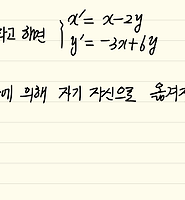 라고 하면 { x' = x-2y
y' = -3x+6y
에 의해 자기 자신으로 옮겨지